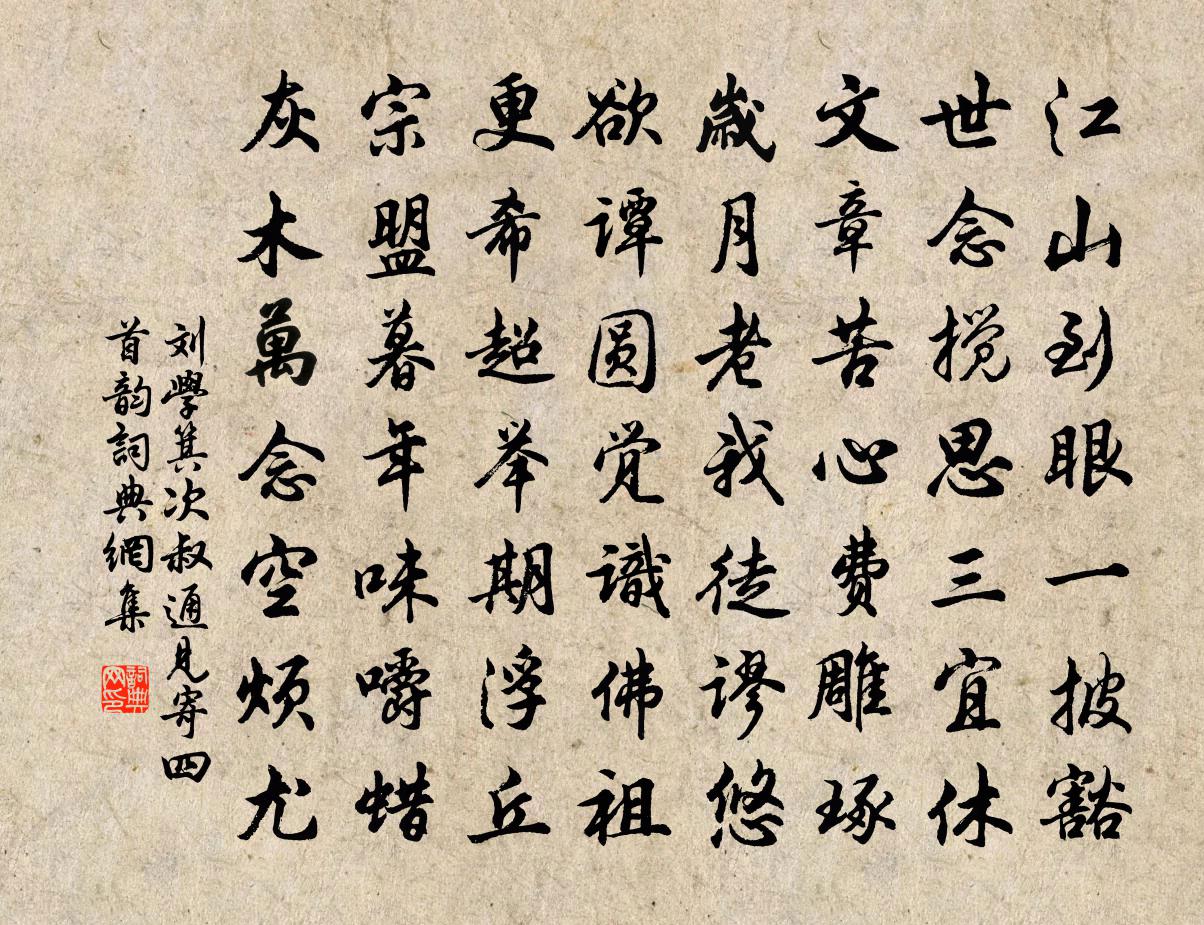 江山到眼一披豁
世念搅思三宜休
文章苦心费雕琢
岁月老我徒谬悠
欲谭圆觉識佛祖
更希超举期浮丘
宗盟暮年味嚼蜡
灰木萬念空烦尤
刘學箕次叔通见寄四
首韵詞典網集
詞典
网印